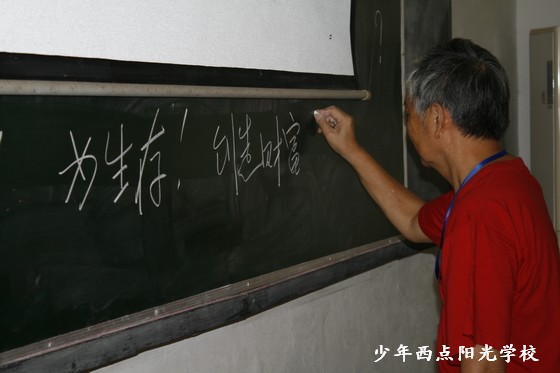 为生存！创造财富
少年西点阳光学校